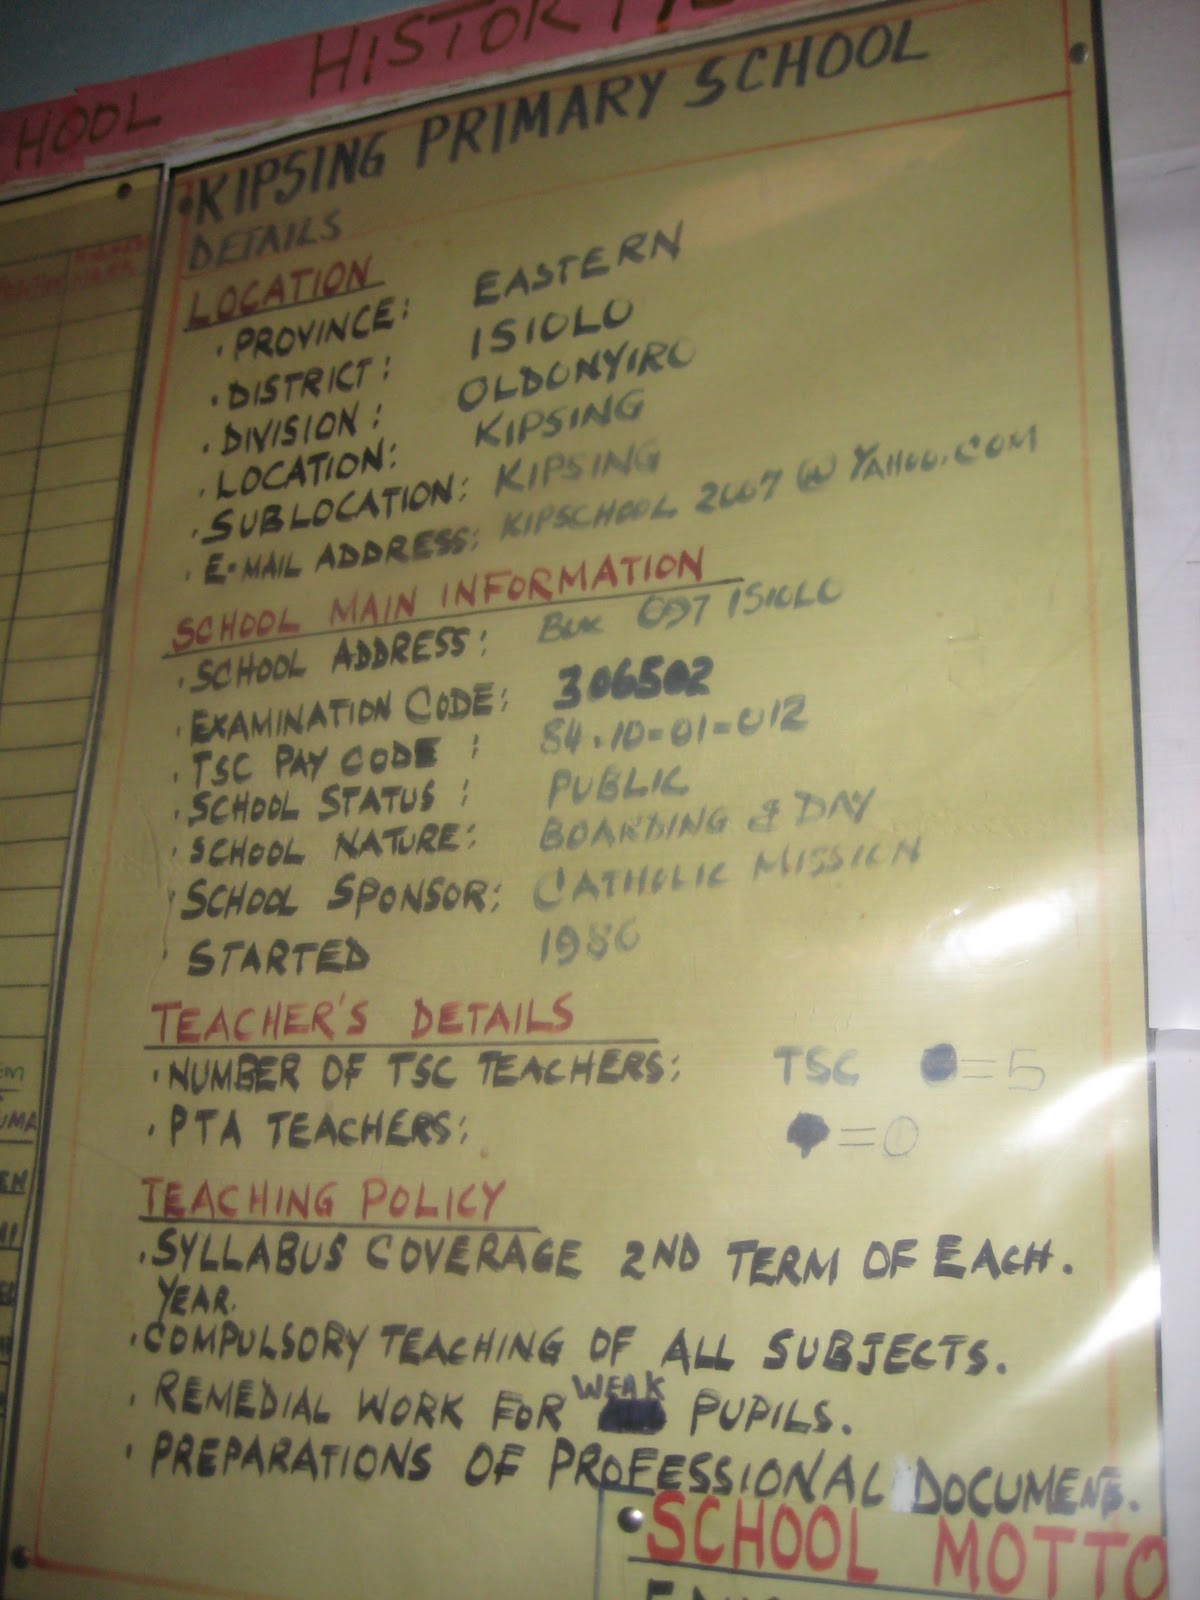 HISTORY
HOOL
KIPSING PRIMARY SCHOOL
DETAILS
LOCATION
PROVINCE: EASTERN
DISTRICT: ISIOLO
DIVISION: OLDONYIRO
LOCATION: KIPSING
SUBLOCATION: KIPSING
E-MAIL ADDRESS: KIPSCHOOL 2007 @ YAHOO.COM
SCHOOL MAIN INFORMATION
SCHOOL ADDRESS: ISIOLO
EXAMINATION CODE: 306502
TSC PAY CODE : 84.10=01=012
SCHOOL STATUS : PUBLIC
SCHOOL NATURE: BOARDING & DAY
SCHOOL SPONSOR: CATHOLIC MISSION
STARTED
TEACHER'S DETAILS
NUMBER OF TSC TEACHERS: TSC =5
PTA TEACHERS: =0
TEACHING POLICY
SYLLABUS COVERAGE 2ND TERM OF EACH.
YEAR.
COMPULSORY TEACHING OF ALL SUBJECTS.
REMEDIAL WORK FOR WEAK PUPILS.
PREPARATIONS OF PROFESSIONAL DOCUMENTS.
SCHOOL MOTTO